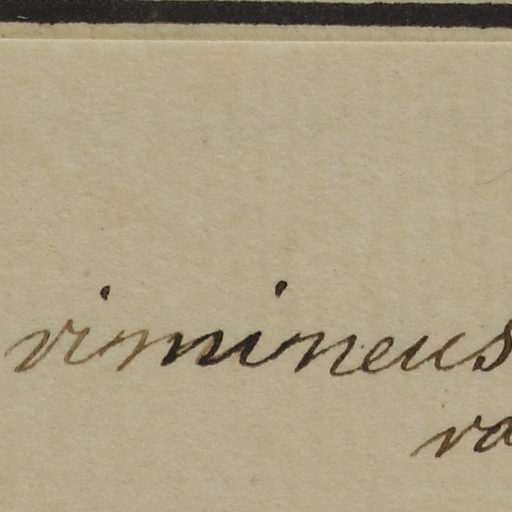 vimineus
va